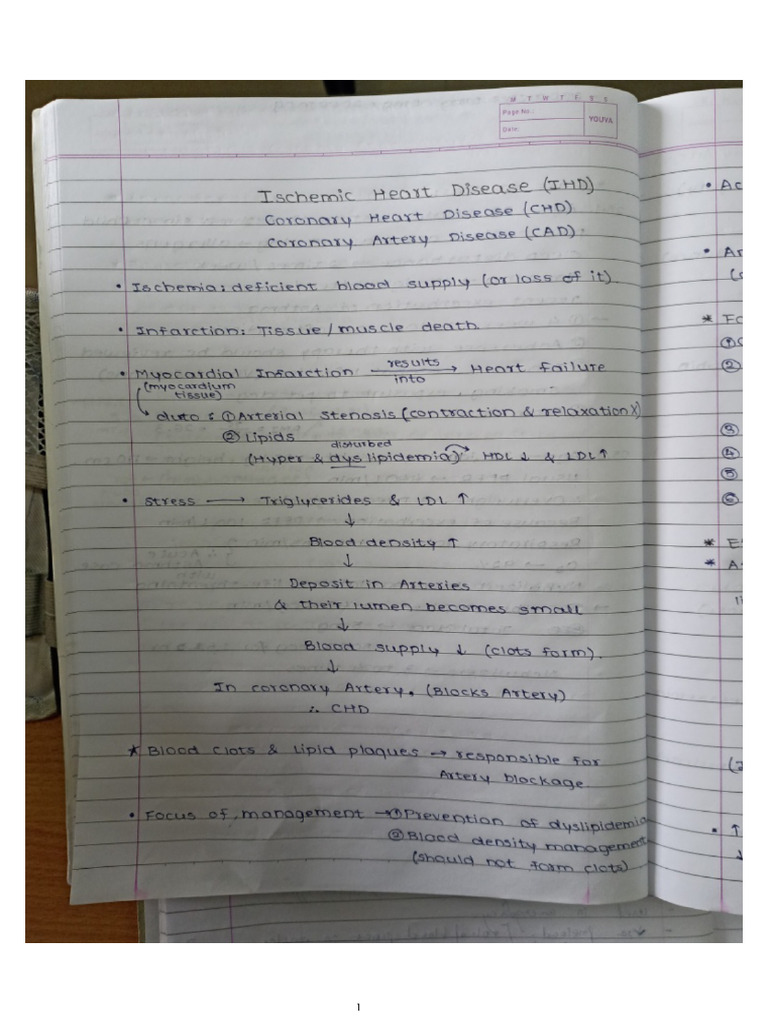 M T W T F S S
Page No.:
Date:
YOUVA
Ischemic Heart Disease (IHD)
Coronary Heart Disease (CHD)
Coronary Artery Disease (CAD)
• Ischemia: deficient blood supply (or loss of it).
• Infarction: Tissue/muscle death
• Myocardial Infarction results into → Heart failure
(myocardium tissue)
duto: ① Arterial stenosis (contraction & relaxation X)
② Lipids
disturbed
(Hyper & dyslipidemia) → HDL ↓ & LDL ↑
• Stress → Triglycerides & LDL ↑
↓
Blood density ↑
↓
Deposit in Arteries
& their lumen becomes small
↓
Blood supply ↓ (clots form).
↓
In coronary Artery. (Blocks Artery)
∴ CHD
* Blood clots & lipid plaques → responsible for
Artery blockage.
• Focus of management → ① Prevention of dyslipidemia
② Blood density management
(should not form clots)
• Ac
•
*
①
②
③
④
⑤
⑥
*
*
• ↑
↓
1